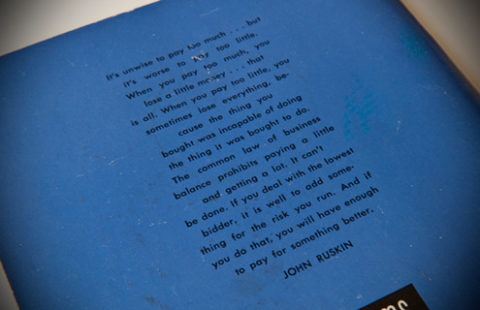 It's unwise to pay too much . . . but
it's worse to pay too little.
When you pay too much, you
lose a little money . . . that
is all. When you pay too little, you
sometimes lose everything, be-
cause the thing you
bought was incapable of doing
the thing it was bought to do.
The common law of business
balance prohibits paying a little
and getting a lot. It can't
be done. If you deal with the lowest
bidder, it is well to add some-
thing for the risk you run. And if
you do that, you will have enough
to pay for something better.
JOHN RUSKIN